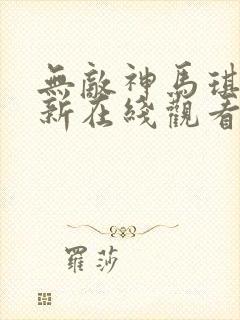 無敵神馬琪
新在綫觀看
羅莎